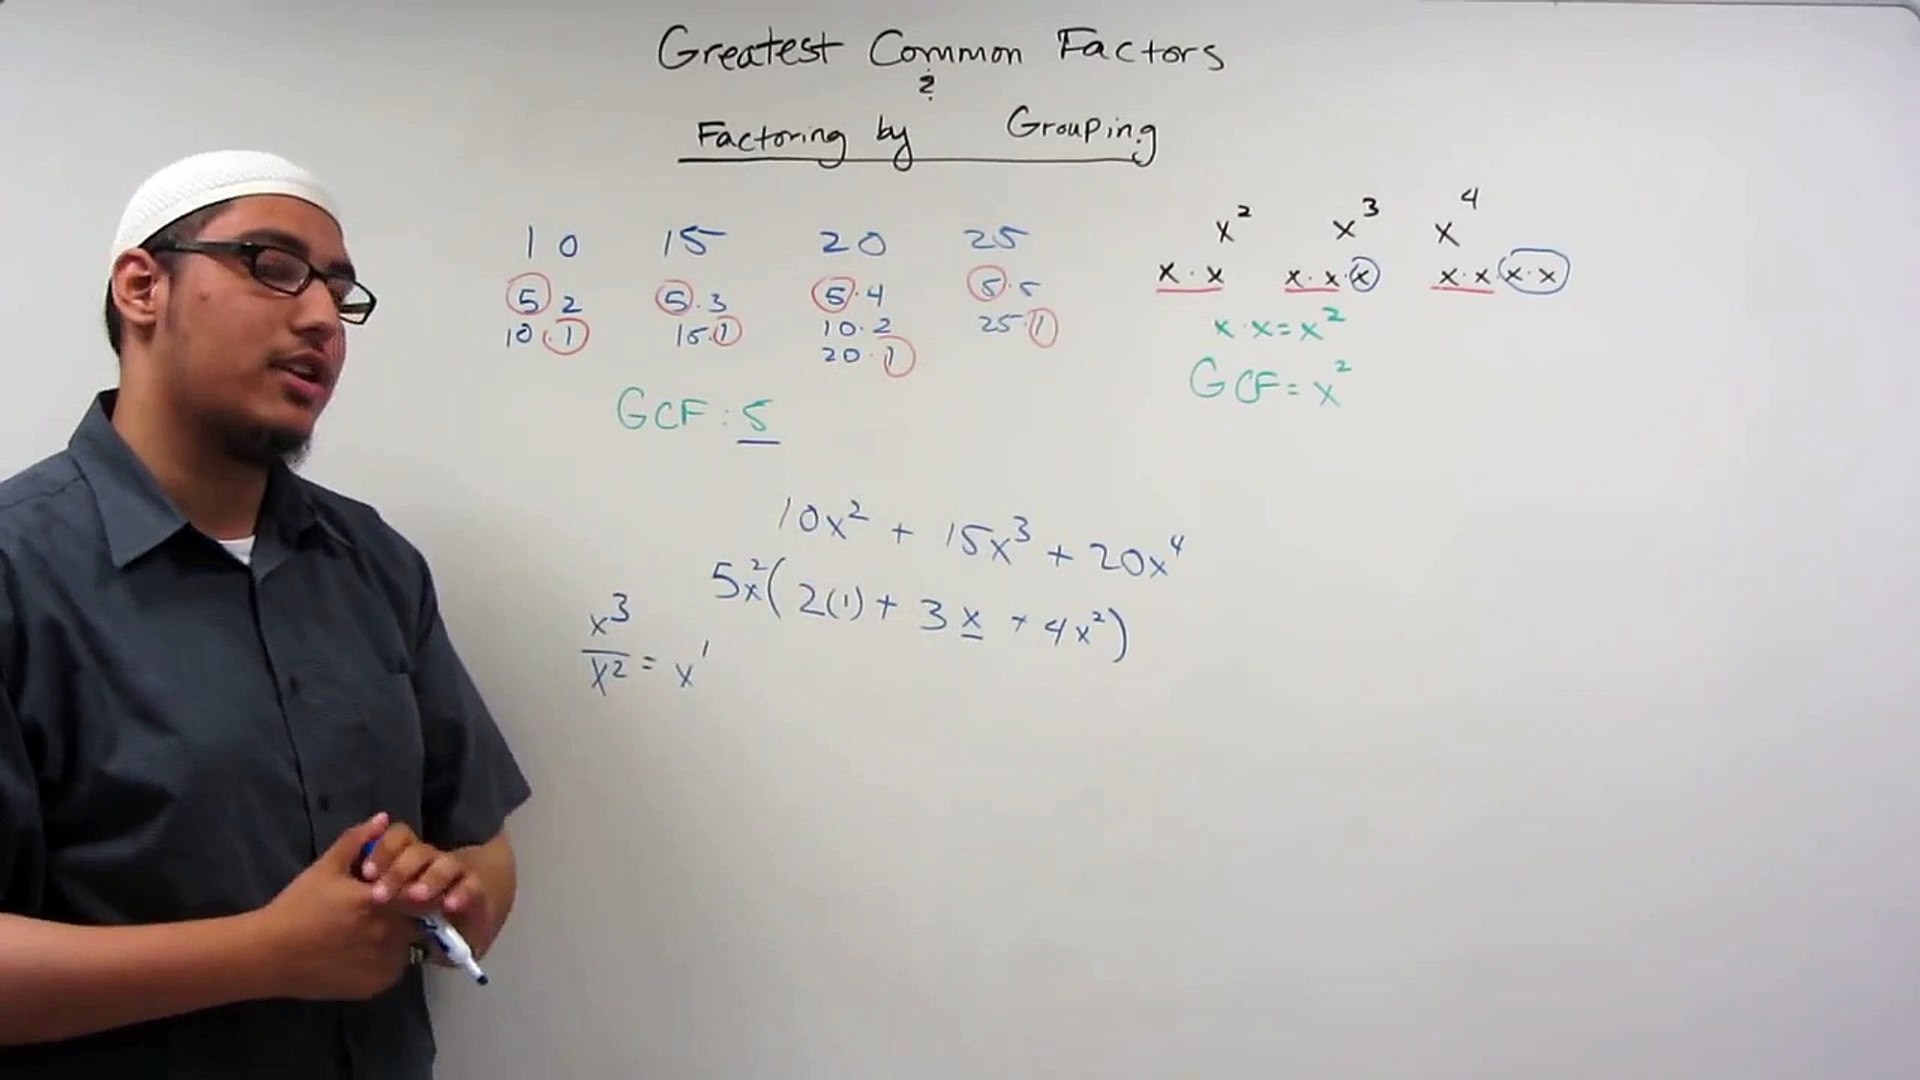 Greatest Common Factors
&
Factoring by Grouping
10 15 20 25
5 2 5.3 5.4 5.5
10.1 15.1 10.2 25.1
20.1
GCF: 5
x² x³ x⁴
x·x x·x·x x·x·x·x
x·x=x²
GCF=x²
10x² + 15x³ + 20x⁴
5x²(2(1) + 3x + 4x²)
x³/x² = x¹